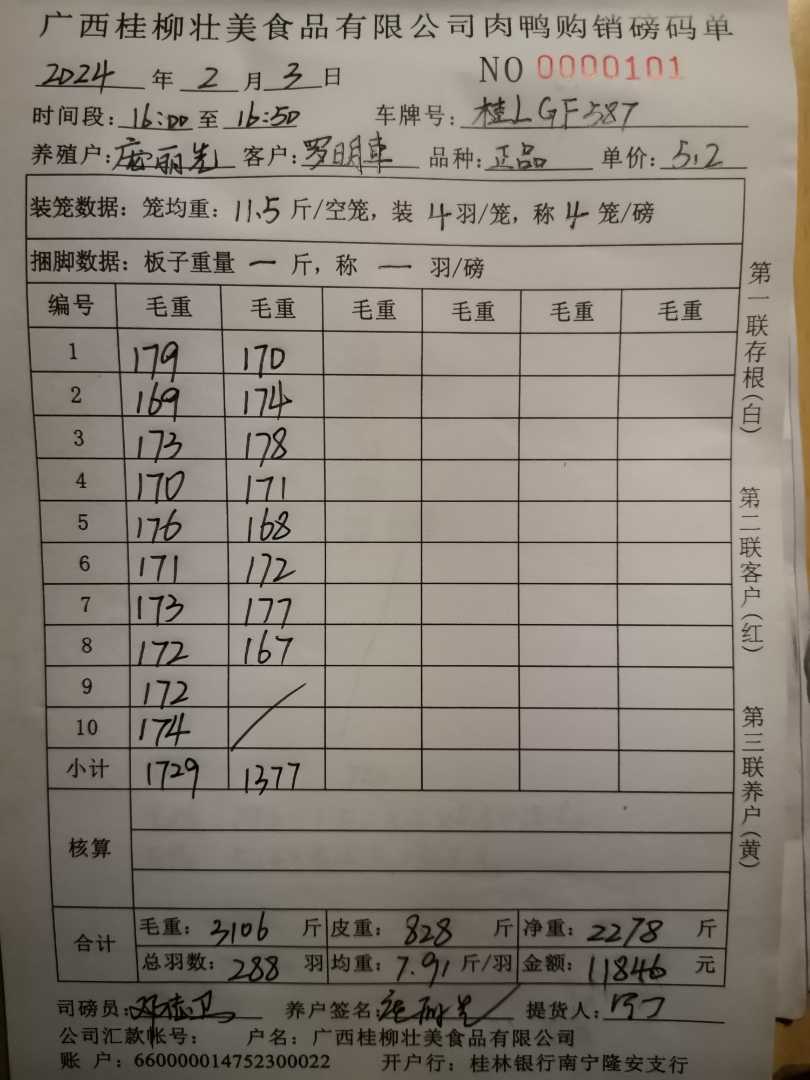 广西桂柳壮美食品有限公司肉鸭购销磅码单
2024 年 2 月 3 日 NO 0000101
时间段: 16:00 至 16:50 车牌号: 桂L GF587
养殖户: 庞丽先 客户: 罗明车 品种: 正品 单价: 5.2
装笼数据: 笼均重: 11.5 斤/空笼, 装 4 羽/笼, 称 4 笼/磅
捆脚数据: 板子重量 一 斤, 称 一 羽/磅
编号 毛重 毛重 毛重 毛重 毛重 毛重
1 179 170
2 169 174
3 173 178
4 170 171
5 176 168
6 171 172
7 173 177
8 172 167
9 172
10 174
小计 1729 1377
核算
合计 毛重: 3106 斤 皮重: 828 斤 净重: 2278 斤
总羽数: 288 羽 均重: 7.91 斤/羽 金额: 11846 元
司磅员: 养户签名: 庞丽先 提货人:
公司汇款帐号: 户名: 广西桂柳壮美食品有限公司
账 户: 660000014752300022 开户行: 桂林银行南宁隆安支行
第一联存根(白)
第二联客户(红)
第三联养户(黄)